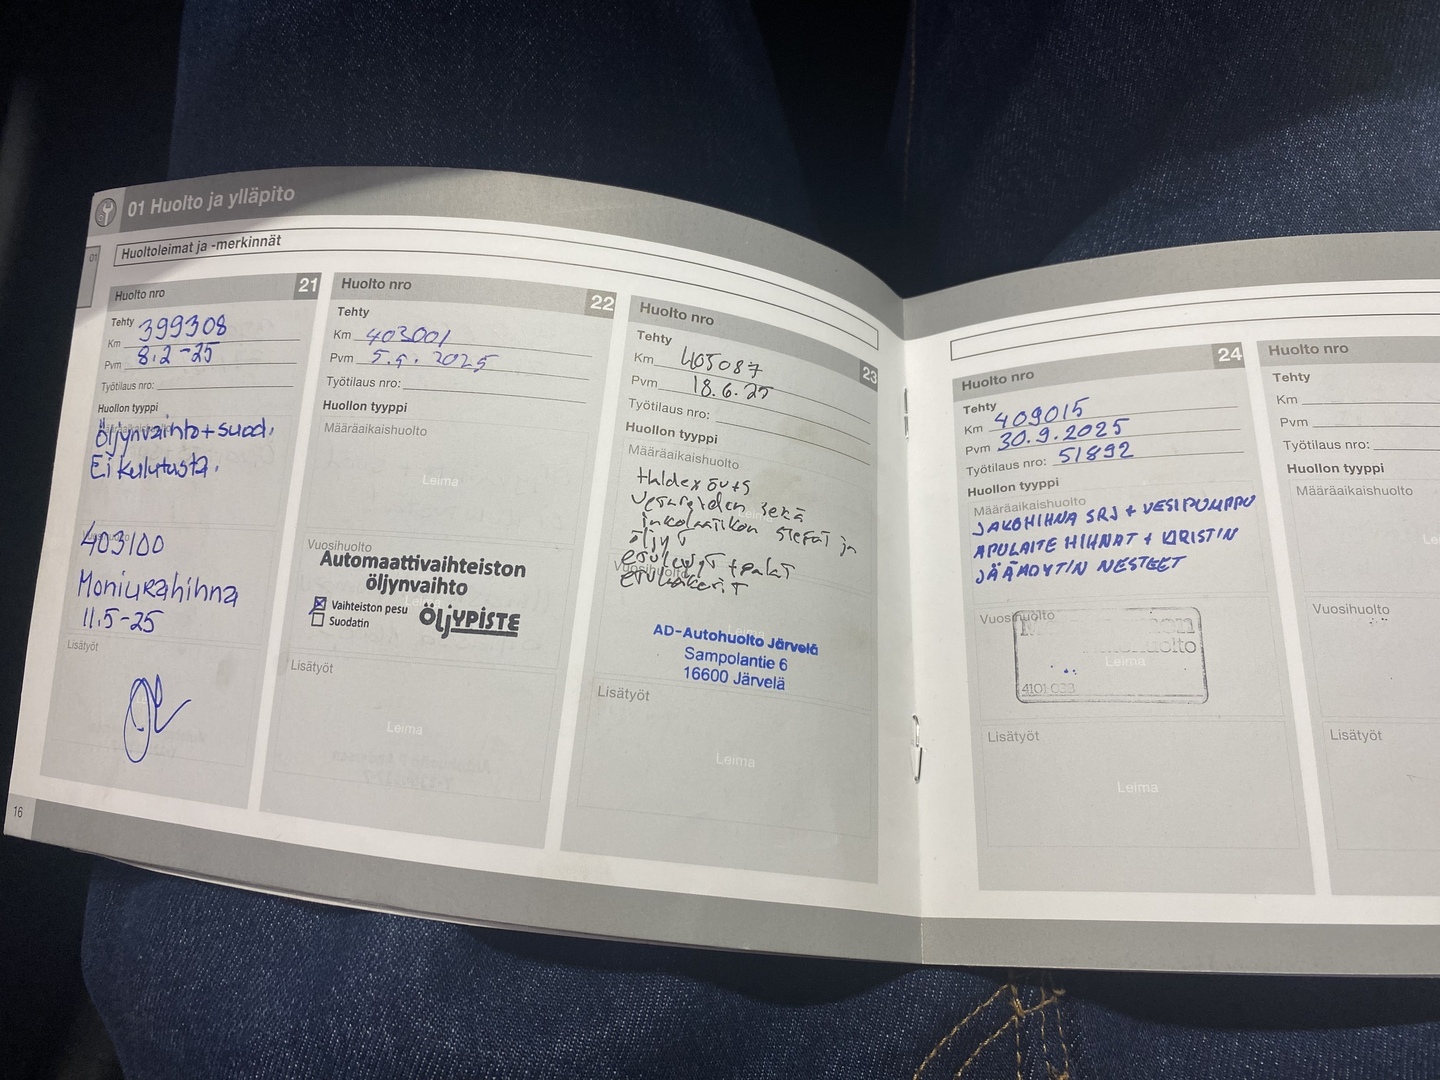 01 Huolto ja ylläpito
01
Huoltoleimat ja -merkinnät
Huolto nro 21
Tehty
Km 399308
Pvm 8.2-25
Työtilaus nro:
Huollon tyyppi
Määräaikaishuolto
Öljynvaihto+suod.
Ei kulutusta.
403100
Moniurahihna
11.5-25
Lisätyöt
16
Huolto nro 22
Tehty
Km 403001
Pvm 5.5.2025
Työtilaus nro:
Huollon tyyppi
Määräaikaishuolto
Leima
Vuosihuolto
Automaattivaihteiston
öljynvaihto
Vaihteiston pesu
Suodatin
ÖljYPISTE
Lisätyöt
Leima
Huolto nro 23
Tehty
Km 405087
Pvm 18.6.25
Työtilaus nro:
Huollon tyyppi
Määräaikaishuolto
Haldex öljyt
sekä
öljyt
Vuosihuolto
+palat
Leima
AD-Autohuolto Järvelä
Sampolantie 6
16600 Järvelä
Lisätyöt
Leima
Huolto nro 24
Tehty
Km 409015
Pvm 30.9.2025
Työtilaus nro: 51892
Huollon tyyppi
Määräaikaishuolto
JAKOHIHNA SRJ + VESIPUMPPU
APULAITE HIHNAT + KIRISTIN
JÄÄHDYTIN NESTEET
Vuosihuolto
Leima
Lisätyöt
Leima
Huolto nro
Tehty
Km
Pvm
Työtilaus nro:
Huollon tyyppi
Määräaikaishuolto
Vuosihuolto
Lisätyöt